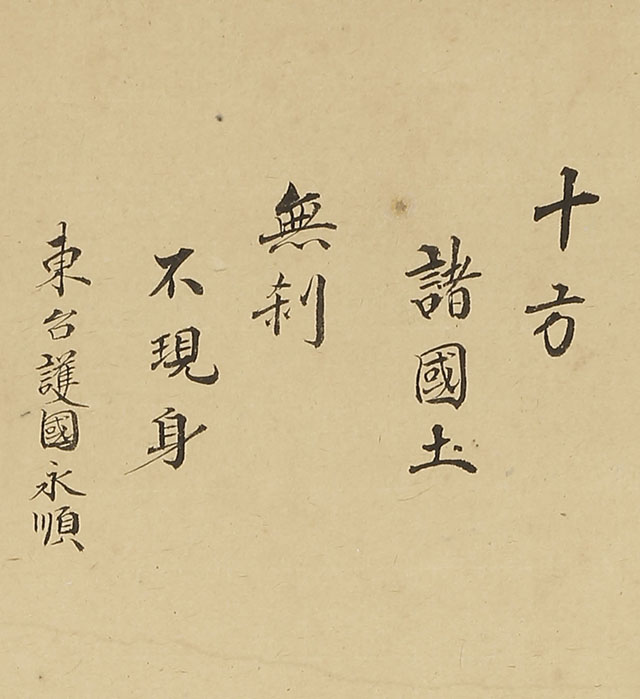 十方
諸國土
無刹
不現身
東台護國永順